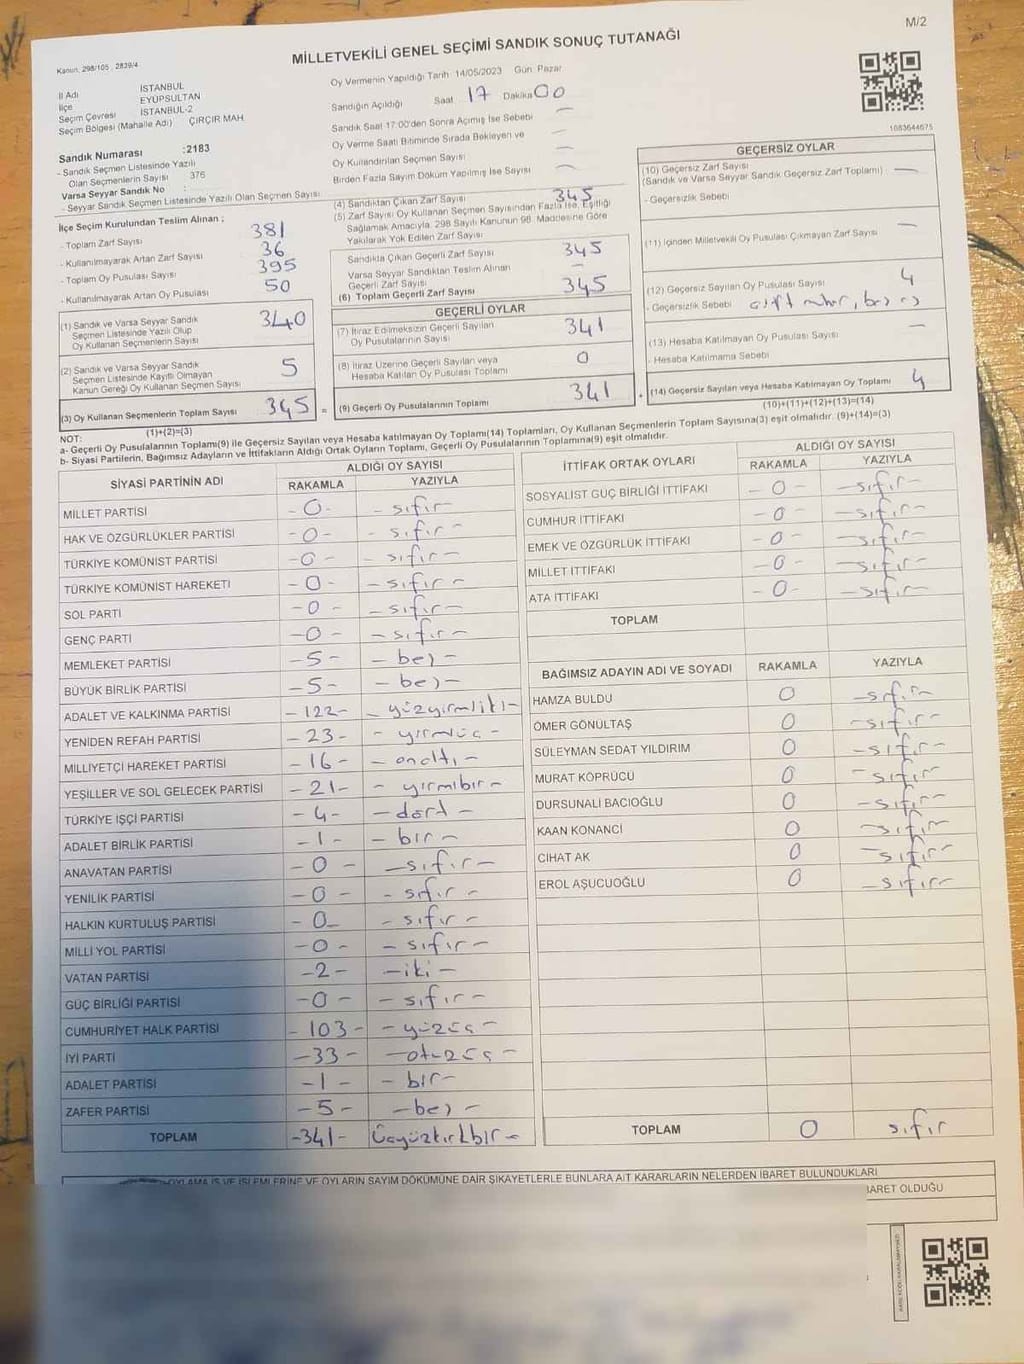 M/2
MİLLETVEKİLİ GENEL SEÇİMİ SANDIK SONUÇ TUTANAĞI
Kanun, 298/105 , 2839/4
İl Adı İSTANBUL
İlçe EYÜPSULTAN
Seçim Çevresi İSTANBUL-2
Seçim Bölgesi (Mahalle Adı) ÇIRÇIR MAH.
Sandık Numarası :2183
- Sandık Seçmen Listesinde Yazılı
Olan Seçmenlerin Sayısı 376
Varsa Seyyar Sandık No :
- Seyyar Sandık Seçmen Listesinde Yazılı Olan Seçmen Sayısı
Oy Vermenin Yapıldığı Tarih 14/05/2023 Gün Pazar
Sandığın Açıldığı Saat 17 Dakika 00
Sandık Saat 17:00'den Sonra Açılmış İse Sebebi —
Oy Verme Saati Bitiminde Sırada Bekleyen ve —
Oy Kullandırılan Seçmen Sayısı —
Birden Fazla Sayım Döküm Yapılmış İse Sayısı —
1083644675
İlçe Seçim Kurulundan Teslim Alınan ;
- Toplam Zarf Sayısı 381
- Kullanılmayarak Artan Zarf Sayısı 36
- Toplam Oy Pusulası Sayısı 395
- Kullanılmayarak Artan Oy Pusulası 50
(1) Sandık ve Varsa Seyyar Sandık
Seçmen Listesinde Yazılı Olup
Oy Kullanan Seçmenlerin Sayısı 340
(2) Sandık ve Varsa Seyyar Sandık
Seçmen Listesinde Kayıtlı Olmayan
Kanun Gereği Oy Kullanan Seçmen Sayısı 5
(3) Oy Kullanan Seçmenlerin Toplam Sayısı 345 =
(1)+(2)=(3)
(4) Sandıktan Çıkan Zarf Sayısı 345
(5) Zarf Sayısı Oy Kullanan Seçmen Sayısından Fazla İse, Eşitliği
Sağlamak Amacıyla, 298 Sayılı Kanunun 98. Maddesine Göre
Yakılarak Yok Edilen Zarf Sayısı
Sandıkta Çıkan Geçerli Zarf Sayısı 345
Varsa Seyyar Sandıktan Teslim Alınan
Geçerli Zarf Sayısı —
(6) Toplam Geçerli Zarf Sayısı 345
GEÇERLİ OYLAR
(7) İtiraz Edilmeksizin Geçerli Sayılan
Oy Pusulalarının Sayısı 341
(8) İtiraz Üzerine Geçerli Sayılan veya
Hesaba Katılan Oy Pusulası Toplamı 0
(9) Geçerli Oy Pusulalarının Toplamı 341
GEÇERSİZ OYLAR
(10) Geçersiz Zarf Sayısı
(Sandık ve Varsa Seyyar Sandık Geçersiz Zarf Toplamı) —
- Geçersizlik Sebebi
(11) İçinden Milletvekili Oy Pusulası Çıkmayan Zarf Sayısı —
(12) Geçersiz Sayılan Oy Pusulası Sayısı 4
- Geçersizlik Sebebi çift mühür,
(13) Hesaba Katılmayan Oy Pusulası Sayısı —
- Hesaba Katılmama Sebebi
(14) Geçersiz Sayılan veya Hesaba Katılmayan Oy Toplamı 4
(10)+(11)+(12)+(13)=(14)
NOT:
a- Geçerli Oy Pusulalarının Toplamı(9) ile Geçersiz Sayılan veya Hesaba katılmayan Oy Toplamı(14) Toplamları, Oy Kullanan Seçmenlerin Toplam Sayısına(3) eşit olmalıdır. (9)+(14)=(3)
b- Siyasi Partilerin, Bağımsız Adayların ve İttifakların Aldığı Ortak Oyların Toplamı, Geçerli Oy Pusulalarının Toplamına(9) eşit olmalıdır.
SİYASİ PARTİNİN ADI ALDIĞI OY SAYISI
RAKAMLA YAZIYLA
MİLLET PARTİSİ -0- - sıfır -
HAK VE ÖZGÜRLÜKLER PARTİSİ -0- - sıfır -
TÜRKİYE KOMÜNİST PARTİSİ -0- - sıfır -
TÜRKİYE KOMÜNİST HAREKETİ -0- - sıfır -
SOL PARTİ -0- - sıfır -
GENÇ PARTİ -0- - sıfır -
MEMLEKET PARTİSİ -5- - beş -
BÜYÜK BİRLİK PARTİSİ -5- - beş -
ADALET VE KALKINMA PARTİSİ -122- - yüzyirmiiki -
YENİDEN REFAH PARTİSİ -23- - yirmiüç -
MİLLİYETÇİ HAREKET PARTİSİ -16- - onaltı -
YEŞİLLER VE SOL GELECEK PARTİSİ -21- - yirmibir -
TÜRKİYE İŞÇİ PARTİSİ -4- - dört -
ADALET BİRLİK PARTİSİ -1- - bir -
ANAVATAN PARTİSİ -0- - sıfır -
YENİLİK PARTİSİ -0- - sıfır -
HALKIN KURTULUŞ PARTİSİ -0- - sıfır -
MİLLİ YOL PARTİSİ -0- - sıfır -
VATAN PARTİSİ -2- - iki -
GÜÇ BİRLİĞİ PARTİSİ -0- - sıfır -
CUMHURİYET HALK PARTİSİ -103- - yüzüç -
İYİ PARTİ -33- - otuzüç -
ADALET PARTİSİ -1- - bir -
ZAFER PARTİSİ -5- - beş -
TOPLAM -341- Üçyüzkırkbir -
İTTİFAK ORTAK OYLARI ALDIĞI OY SAYISI
RAKAMLA YAZIYLA
SOSYALİST GÜÇ BİRLİĞİ İTTİFAKI -0- - sıfır -
CUMHUR İTTİFAKI -0- - sıfır -
EMEK VE ÖZGÜRLÜK İTTİFAKI -0- - sıfır -
MİLLET İTTİFAKI -0- - sıfır -
ATA İTTİFAKI -0- - sıfır -
TOPLAM
BAĞIMSIZ ADAYIN ADI VE SOYADI RAKAMLA YAZIYLA
HAMZA BULDU 0 - sıfır -
ÖMER GÖNÜLTAŞ 0 - sıfır -
SÜLEYMAN SEDAT YILDIRIM 0 - sıfır -
MURAT KÖPRÜCÜ 0 - sıfır -
DURSUNALİ BACIOĞLU 0 - sıfır -
KAAN KONANCİ 0 - sıfır -
CİHAT AK 0 - sıfır -
EROL AŞUCUOĞLU 0 - sıfır -
TOPLAM 0 sıfır
OYLAMA İŞ VE İŞLEMLERİNE VE OYLARIN SAYIM DÖKÜMÜNE DAİR ŞİKAYETLERLE BUNLARA AİT KARARLARIN NELERDEN İBARET BULUNDUKLARI
İBARET OLDUĞU